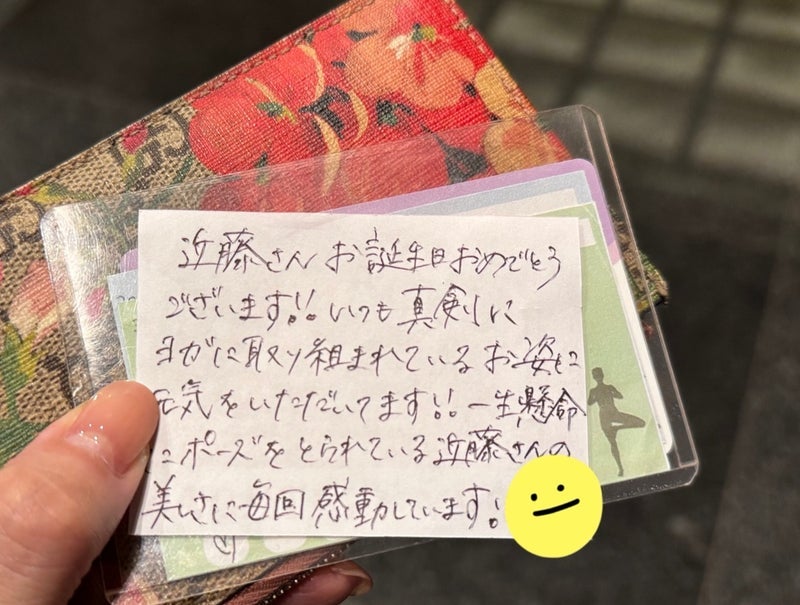 近藤さん お誕生日おめでとう
ございます!! いつも真剣に
ヨガに取り組まれているお姿に
元気をいただいてます!! 一生懸命
にポーズをとられている近藤さんの
美しさに毎回感動しています!